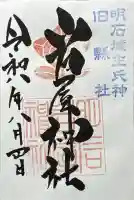 明石城生氏神
旧縣社
岩屋神社
令和六年八月四日